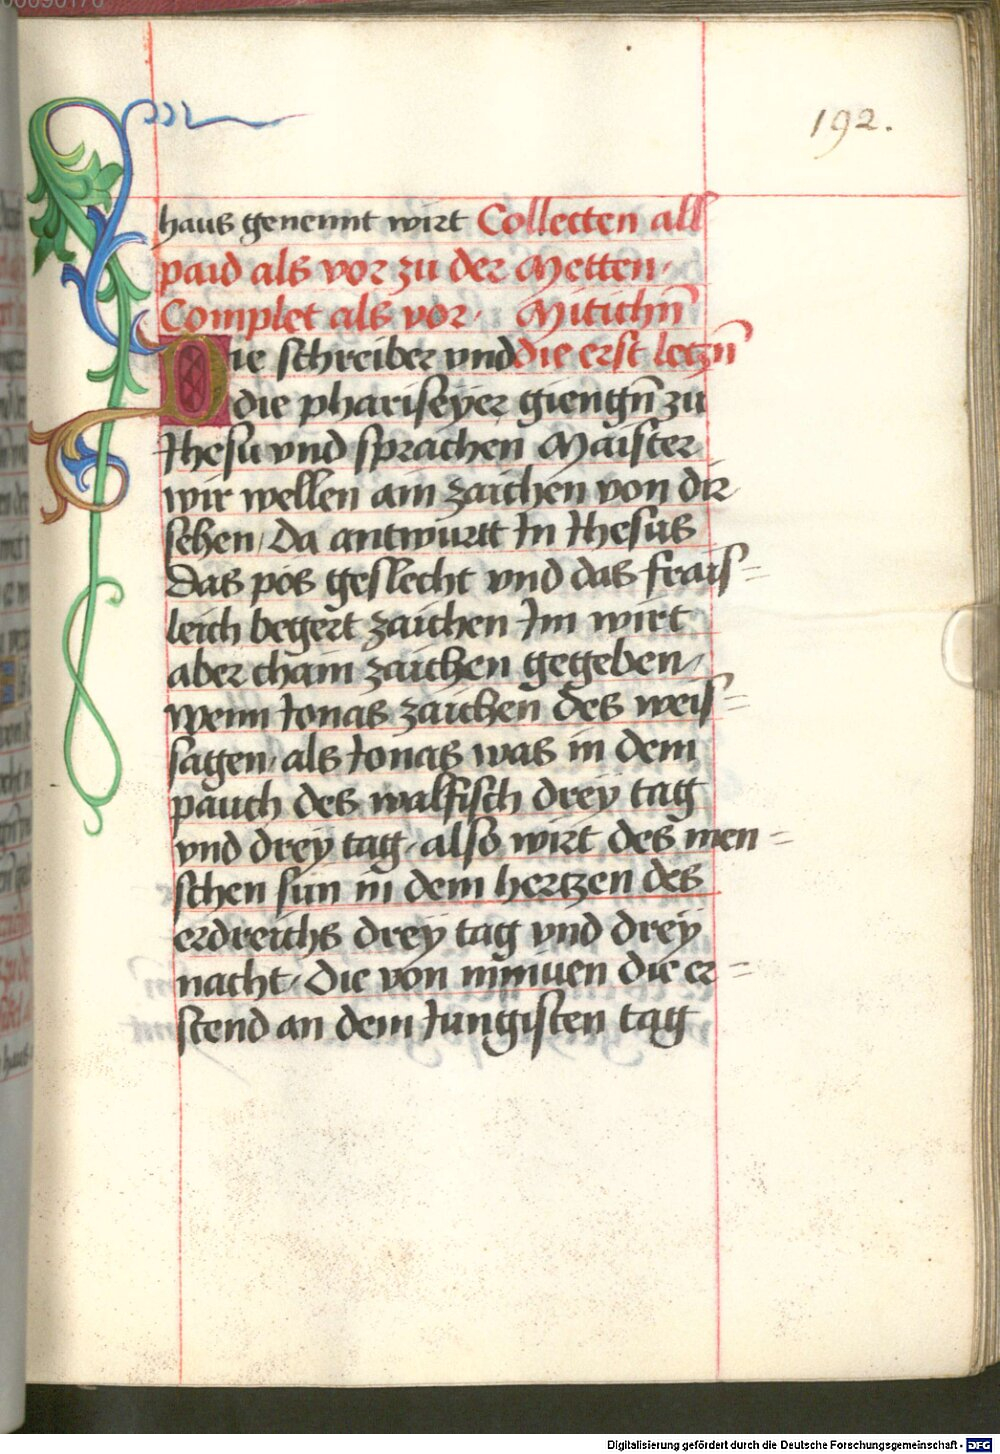 192.
haus genennt wirt Collecten all
paid als vor zu der Metten
Complet als vor. Mitichn̄
Die schreiber vnd die erst letzn̄
die phariseÿer giengn̄ zu
Ihesu vnd sprachen Maister
wir wellen ain zaichen von dir
sehen / Da antwurtt In Ihesus
Das pös geslecht vnd das frais=
leich begert zaichen Im wirt
aber chain zaichen gegeben /
wenn Ionas zaichen des weis=
sagen / als Ionas was in dem
pauch des walfisch dreÿ tag
vnd dreÿ tag / also wirt des men=
schen sun in dem hertzen des
erdreichs dreÿ tag vnd dreÿ
nacht / Die von niniuen die er=
stend an dem Iungisten tag
Digitalisierung gefördert durch die Deutsche Forschungsgemeinschaft - DFG